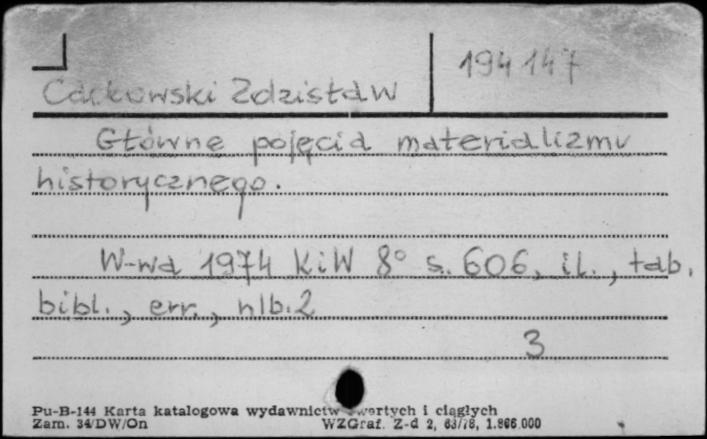 194 147
Cackowski Zdzisław
Główne pojęcia materializmu
historycznego.
W-wa 1974 KiW 8° s. 606, il., tab.
bibl., err., nlb.2
3
Pu-B-144 Karta katalogowa wydawnictw zwartych i ciągłych
Zam. 34/DW/On WZGraf. Z-d 2, 63/78, 1.866.000